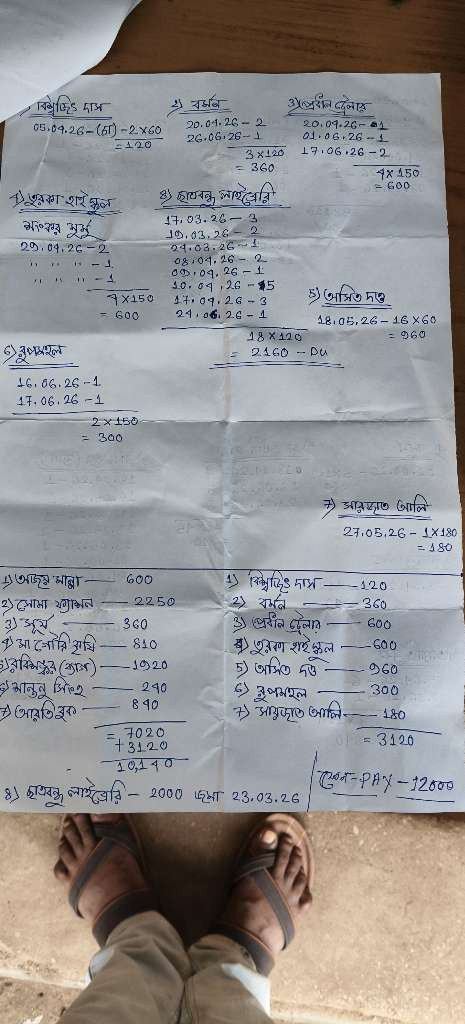 ১) বিশ্বজিৎ দাস
05.04.26 - (বো) - 2 x 60
= 120
২) বর্মন
20.04.26 - 2
26.06.26 - 1
3 x 120
= 360
3)
20.04.26 - 1
01.06.26 - 1
17.06.26 - 2
4 x 150
= 600
হাই স্কুল
29.04.26 - 2
" " " - 1
" " " - 1
4 x 150
= 600
8) ছাত্রবন্ধু লাইব্রেরি
17.03.26 - 3
19.03.26 - 2
24.03.26 - 1
08.04.26 - 2
09.04.26 - 1
10.04.26 - 5
17.04.26 - 3
24.06.26 - 1
18 x 120
= 2160 - Du
5) অসিত দত্ত
18.05.26 - 16 x 60
= 960
6) রূপমহল
16.06.26 - 1
17.06.26 - 1
2 x 150
= 300
7) আলি
27.05.26 - 1 x 180
= 180
1) মান্না — 600
2) সোমা — 2250
3) — 360
4) মা — 810
— 1920
সিংহ — 240
7) আরতি বুক — 840
= 7020
+ 3120
10,140
1) বিশ্বজিৎ দাস — 120
2) বর্মন — 360
3) — 600
4) হাই স্কুল — 600
5) অসিত দত্ত — 960
6) রূপমহল — 300
7) আলি — 180
= 3120
8) ছাত্রবন্ধু লাইব্রেরি - 2000 জমা 23.03.26
ফোন-PAY - 12000